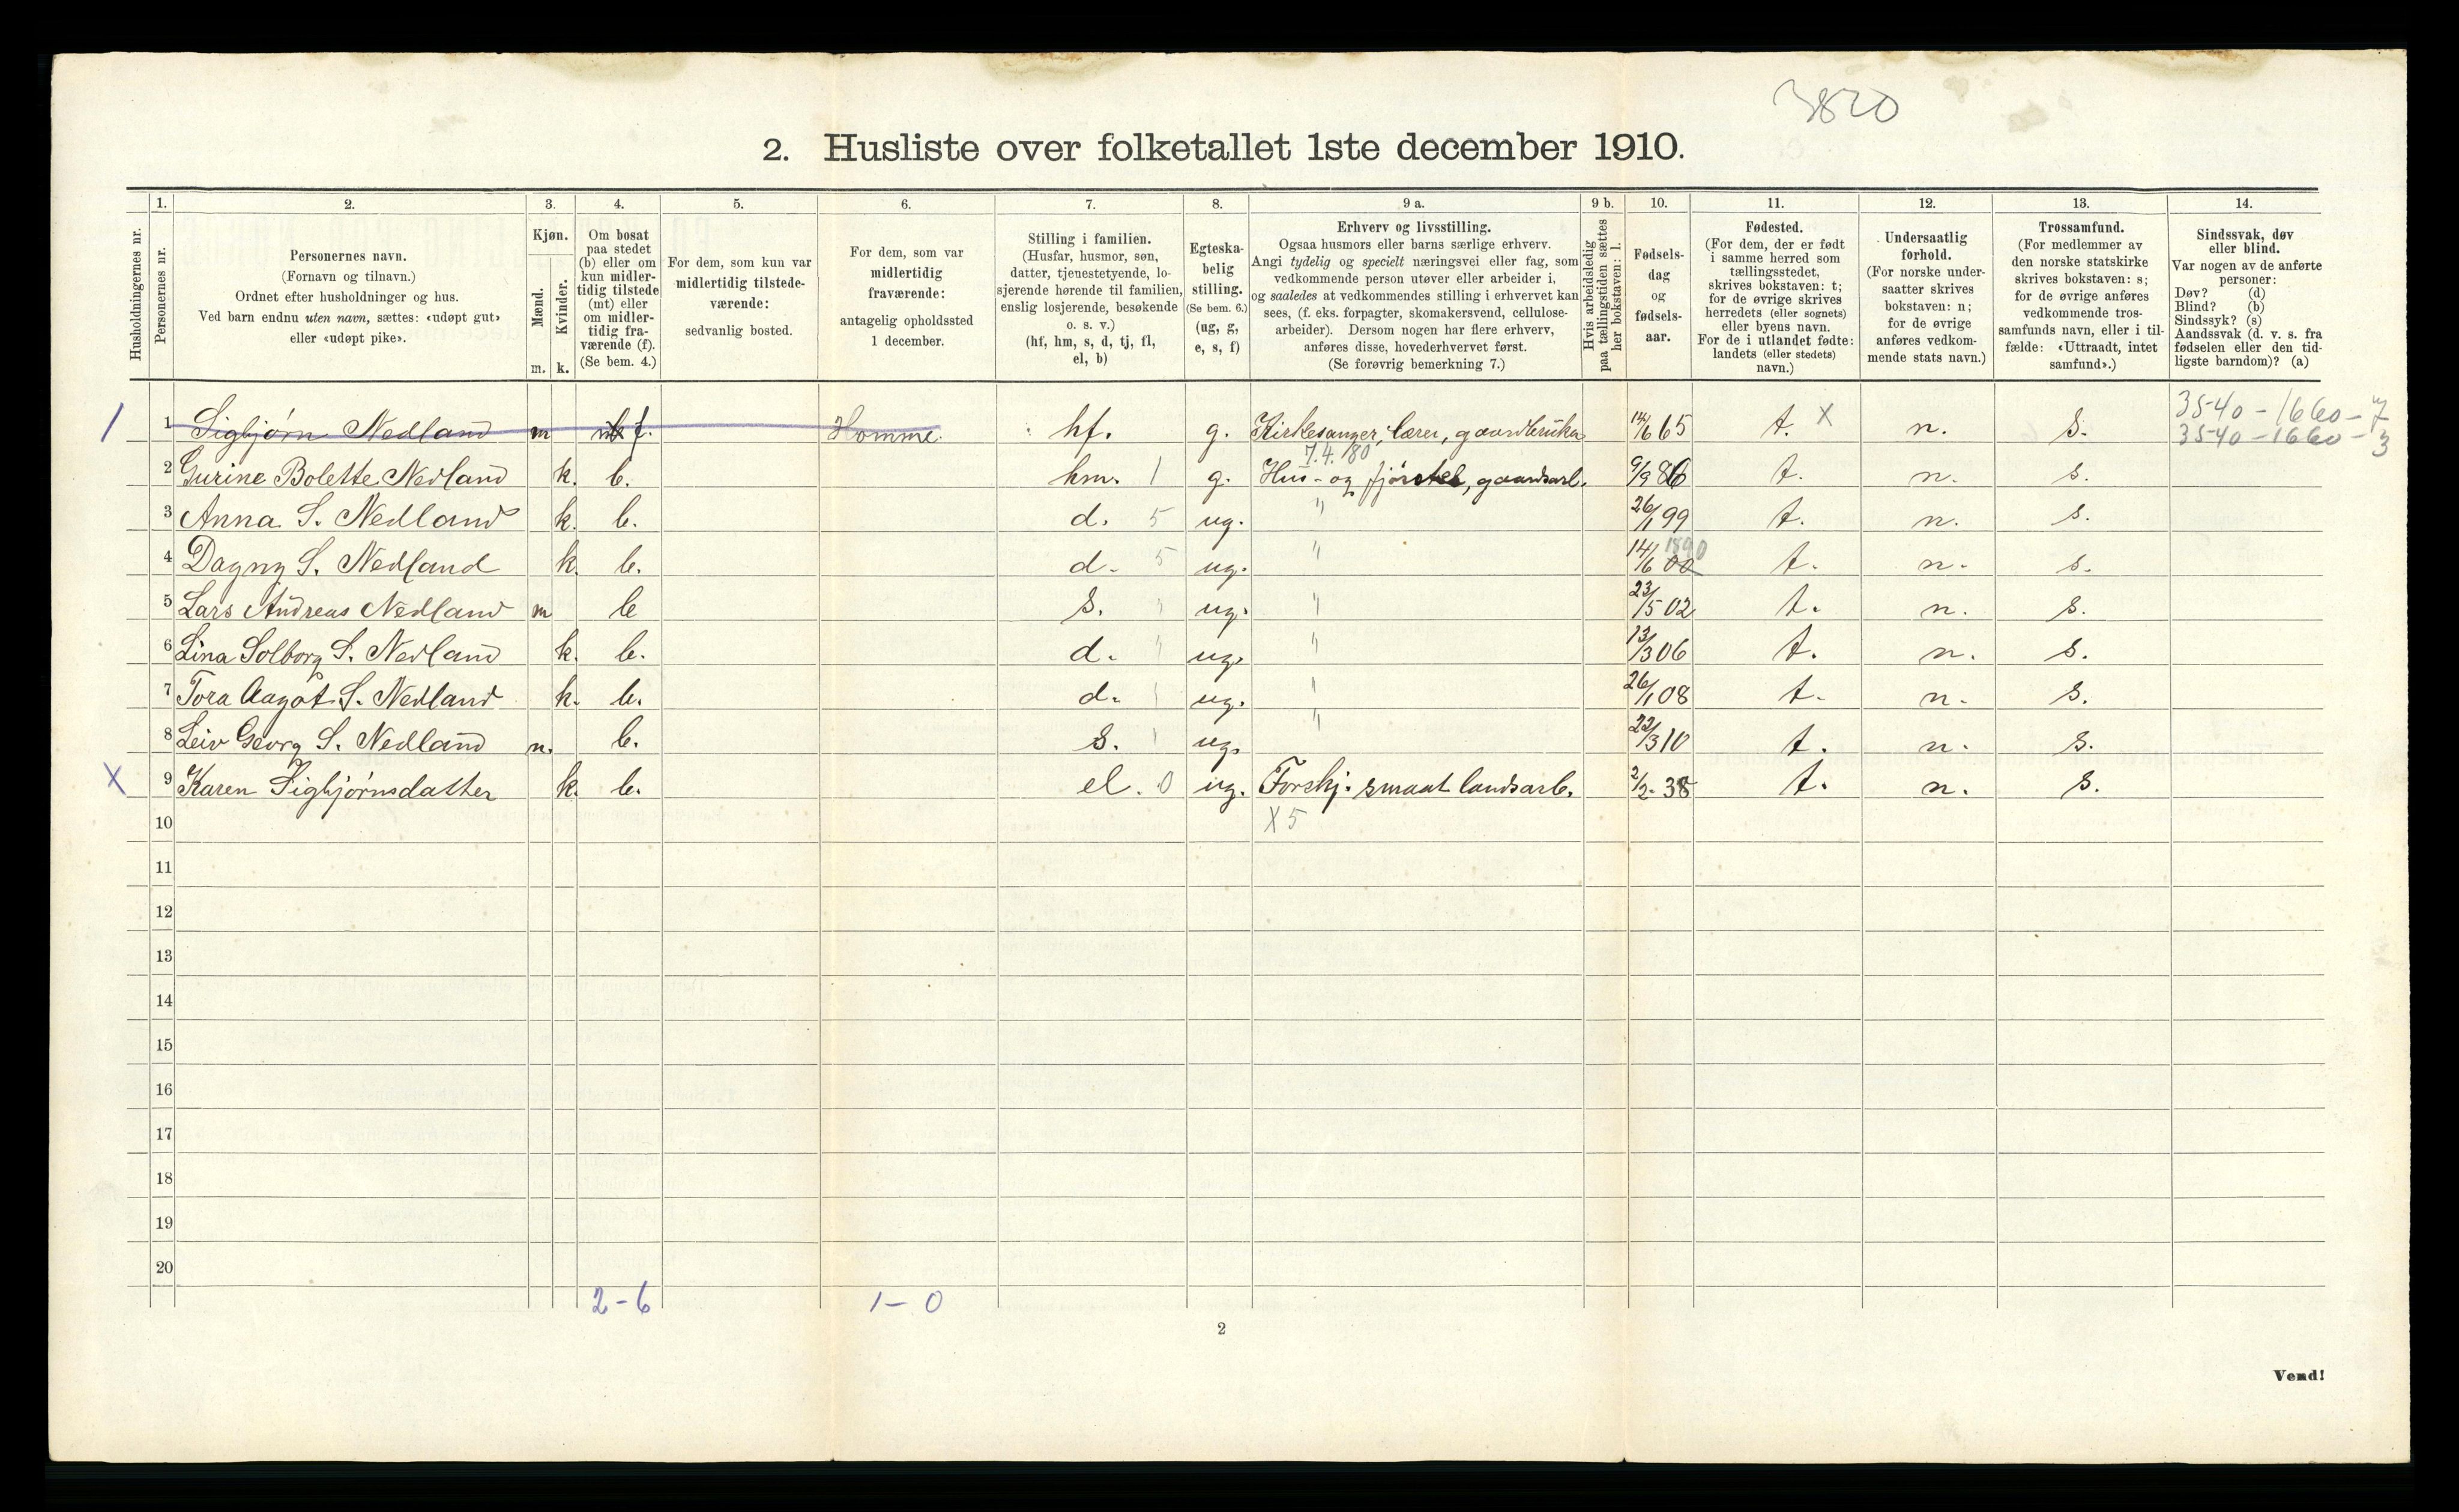 3820
2. Husliste over folketallet 1ste december 1910.
1. 2. 3. 4. 5. 6. 7. 8. 9 a. 9 b. 10. 11. 12. 13. 14.
Husholdningernes nr.
Personernes nr.
Personernes navn.
(Fornavn og tilnavn.)
Ordnet efter husholdninger og hus.
Ved barn endnu uten navn, sættes: «udøpt gut»
eller «udøpt pike».
Kjøn.
Mænd.
Kvinder.
m. k.
Om bosat
paa stedet
(b) eller om
kun midler-
tidig tilstede
(mt) eller
om midler-
tidig fra-
værende (f).
(Se bem. 4.)
For dem, som kun var
midlertidig tilstede-
værende:
sedvanlig bosted.
For dem, som var
midlertidig
fraværende:
antagelig opholdssted
1 december.
Stilling i familien.
(Husfar, husmor, søn,
datter, tjenestetyende, lo-
sjerende hørende til familien,
enslig losjerende, besøkende
o. s. v.)
(hf, hm, s, d, tj, fl,
el, b)
Egteska-
belig
stilling.
(Se bem. 6.)
(ug, g,
e, s, f)
Erhverv og livsstilling.
Ogsaa husmors eller barns særlige erhverv.
Angi tydelig og specielt næringsvei eller fag, som
vedkommende person utøver eller arbeider i,
og saaledes at vedkommendes stilling i erhvervet kan
sees, (f. eks. forpagter, skomakersvend, cellulose-
arbeider). Dersom nogen har flere erhverv,
anføres disse, hovederhvervet først.
(Se forøvrig bemerkning 7.)
Hvis arbeidsledig
paa tællingstiden sættes
her bokstaven: l.
Fødsels-
dag
og
fødsels-
aar.
Fødested.
(For dem, der er født
i samme herred som
tællingsstedet,
skrives bokstaven: t;
for de øvrige skrives
herredets (eller sognets)
eller byens navn.
For de i utlandet fødte:
landets (eller stedets)
navn.)
Undersaatlig
forhold.
(For norske under-
saatter skrives
bokstaven: n;
for de øvrige
anføres vedkom-
mende stats navn.)
Trossamfund.
(For medlemmer av
den norske statskirke
skrives bokstaven: s;
for de øvrige anføres
vedkommende tros-
samfunds navn, eller i til-
fælde: «Uttraadt, intet
samfund».)
Sindssvak, døv
eller blind.
Var nogen av de anførte
personer:
Døv? (d)
Blind? (b)
Sindssyk? (s)
Aandssvak (d. v. s. fra
fødselen eller den tid-
ligste barndom)? (a)
35-40 - 1660 - 7
1 Sigbjørn Nedland m f. Homme hf. g. Kirkesanger, lærer, gaardbruker 14/6 65 t. X n. s. 35-40 - 1660 - 3
7.4.80
2 Gurine Bolette Nedland k. b. hm. 1 g. Hus- og fjørstel, gaardsarb. 9/9 86 t. n. s.
3 Anna S. Nedland k. b. d. 5 ug. " 26/1 99 t. n. s.
1890
4 Dagny S. Nedland k. b. d. 5 ug. " 14/6 00 t. n. s.
5 Lars Andreas Nedland m b s. " ug. " 23/5 02 t. n. s.
6 Lina Solborg S. Nedland k. b. d. " ug. " 13/3 06 t. n. s.
7 Tora Aagot S. Nedland k. b. d. ug. " 26/1 08 t. n. s.
8 Leiv Georg S. Nedland m. b. s. ug. " 22/3 10 t. n. s.
X 9 Karen Sigbjørnsdatter k. b. el. 0 ug. Forskj. smaat landsarb. 2/2 38 t. n. s.
10 X 5
11
12
13
14
15
16
17
18
19
20
2 - 6 1 - 0
2
Vend!